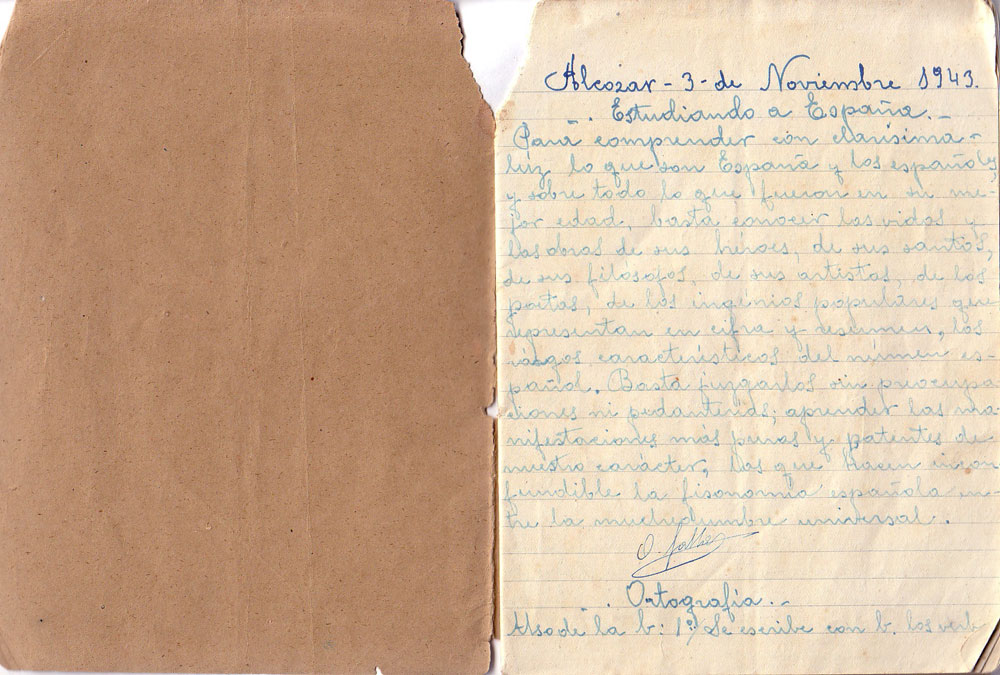 Alcozar - 3 - de Noviembre 1943.
-. Estudiando a España. -
Para comprender con clarisima
luz lo que son España y los españoles
y sobre todo lo que fueron en su me-
jor edad, basta conocer las vidas y
las obras de sus héroes, de sus santos,
de sus filósofos, de sus artistas, de los
poetas, de los ingenios populares que
representan en cifra y resumen, los
rasgos característicos del númen es-
pañol. Basta juzgarlos sin preocupa
ciones ni pedanterias; aprender las ma
nifestaciones más puras y patentes de
nuestro carácter, las que hacen incon
fundible la fisonomía española en-
tre la muchedumbre universal.
O.
-. Ortografía. -
Uso de la b: 1º Se escribe con b. los verb